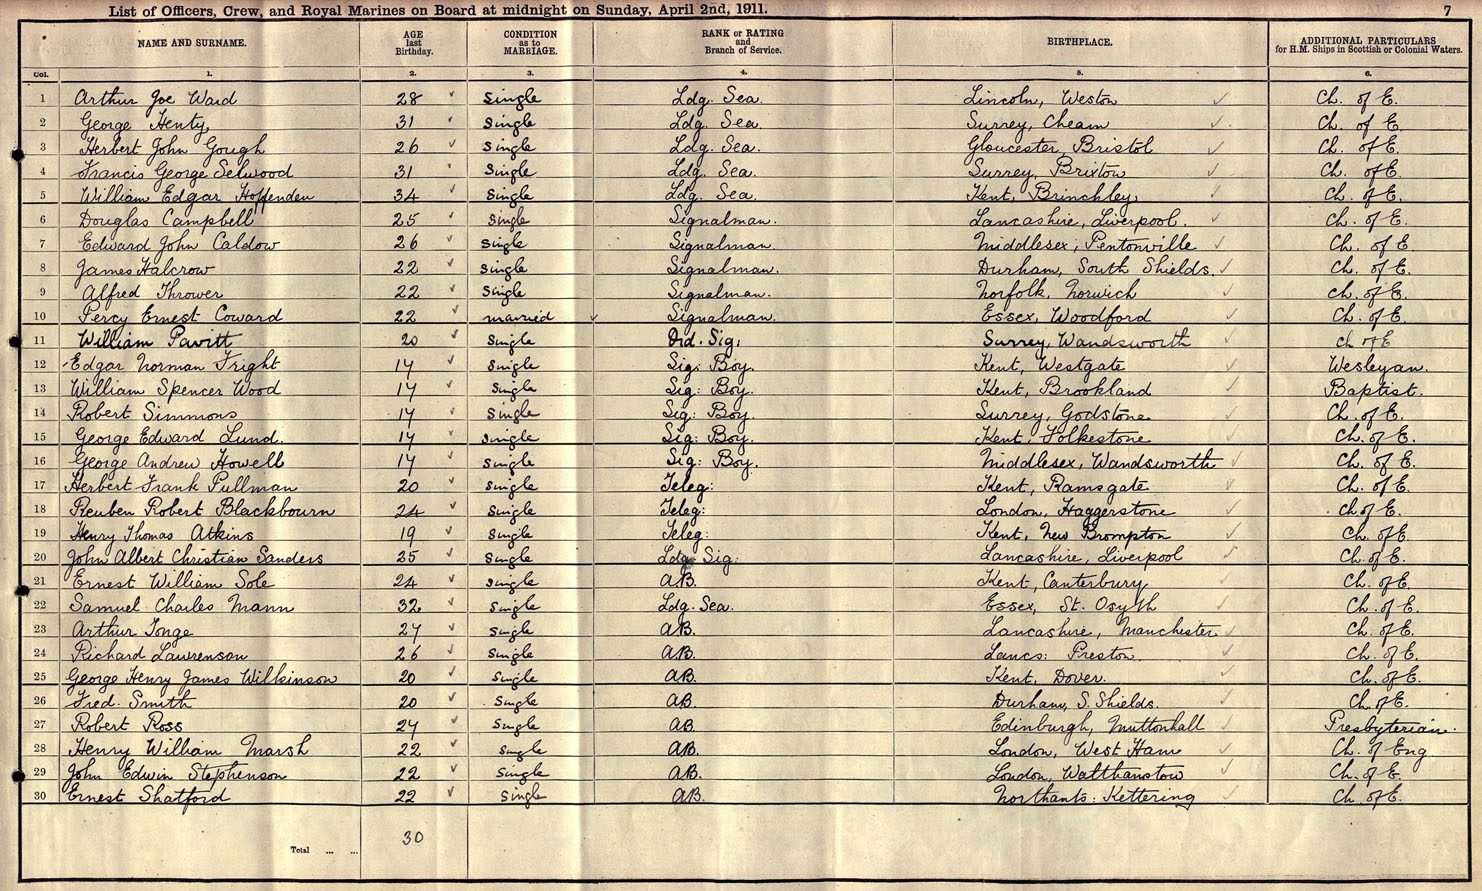 List of Officers, Crew, and Royal Marines on Board at midnight on Sunday, April 2nd, 1911. 7
NAME AND SURNAME. AGE last Birthday. CONDITION as to MARRIAGE. RANK or RATING and Branch of Service. BIRTHPLACE. ADDITIONAL PARTICULARS for H.M. Ships in Scottish or Colonial Waters.
Col. 1. 2. 3. 4. 5. 6.
1 Arthur Joe Ward 28 Single Ldg. Sea. Lincoln, Weston Ch. of E.
2 George Henty, 31 Single Ldg. Sea. Surrey, Cheam Ch. of E.
3 Herbert John Gough 26 Single Ldg. Sea. Gloucester, Bristol Ch. of E.
4 Francis George Selwood 31 Single Ldg. Sea. Surrey, Brixton Ch. of E.
5 William Edgar Hoffenden 34 Single Ldg. Sea. Kent, Brinchley, Ch. of E.
6 Douglas Campbell 25 Single Signalman. Lancashire, Liverpool. Ch. of E.
7 Edward John Caldow 26 Single Signalman. Middlesex, Pentonville Ch. of E.
8 James Halcrow 22 Single Signalman. Durham, South Shields, Ch. of E.
9 Alfred Thrower 22 Single Signalman. Norfolk, Norwich Ch. of E.
10 Percy Ernest Coward 22 Married Signalman. Essex, Woodford Ch. of E.
11 William Pavitt 20 Single Ord. Sig: Surrey, Wandsworth Ch of E
12 Edgar Norman Fright 17 Single Sig: Boy. Kent, Westgate Wesleyan.
13 William Spencer Wood 17 Single Sig: Boy. Kent, Brookland Baptist.
14 Robert Simmons 17 Single Sig: Boy. Surrey, Godstone Ch. of E.
15 George Edward Lund. 17 Single Sig: Boy. Kent, Folkestone Ch. of E.
16 George Andrew Howell 17 Single Sig: Boy. Middlesex, Wandsworth Ch. of E.
17 Herbert Frank Pullman 20 Single Teleg: Kent, Ramsgate Ch. of E.
18 Reuben Robert Blackbourn 24 Single Teleg: London, Haggerstone Ch of E.
19 Henry Thomas Atkins 19 Single Teleg: Kent, New Brompton Ch. of E.
20 John Albert Christian Sanders 25 Single Ldg Sig: Lancashire, Liverpool Ch. of E.
21 Ernest William Sole 24 Single A.B. Kent, Canterbury Ch. of E.
22 Samuel Charles Mann 32 Single Ldg. Sea. Essex, St. Osyth Ch. of E.
23 Arthur Tonge 27 Single AB. Lancashire, Manchester Ch. of E.
24 Richard Lawrenson 26 Single AB. Lancs: Preston. Ch. of E.
25 George Henry James Wilkinson 20 Single AB. Kent, Dover. Ch. of E.
26 Fred. Smith 20 Single AB. Durham, S. Shields. Ch. of E.
27 Robert Ross 27 Single AB. Edinburgh, Muttonhall Presbyterian.
28 Henry William Marsh 22 Single AB. London, West Ham Ch. of Eng
29 John Edwin Stephenson 22 Single AB. London, Walthamstow Ch. of E.
30 Ernest Shatford 22 Single AB. Northants: Kettering Ch. of E.
Total ... ... 30